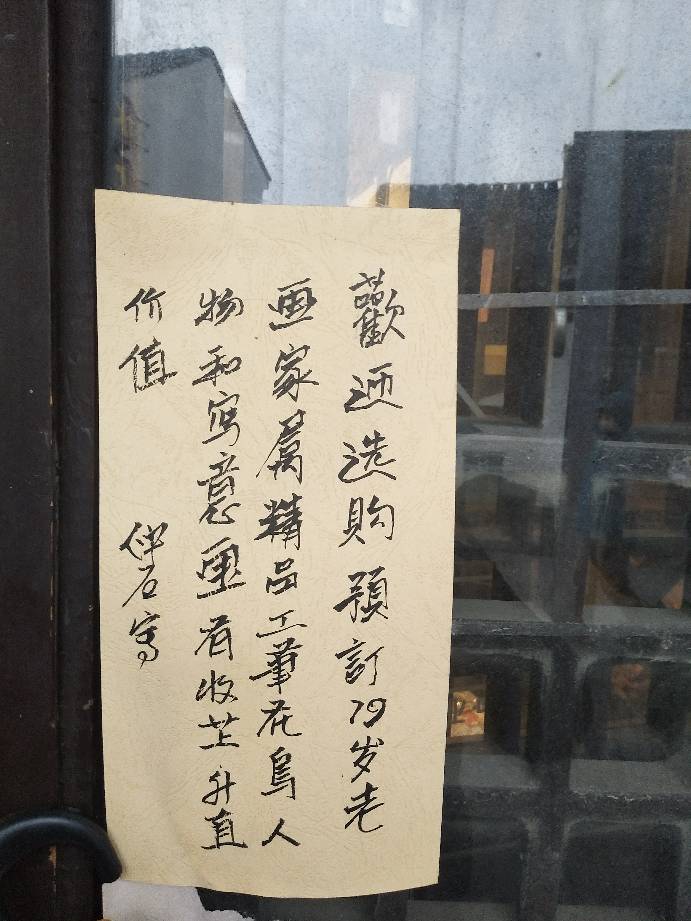 歡迎选购預訂79岁老
画家属精品工筆花鸟人
物和寫意画有收芷升直
价值
仲石寫